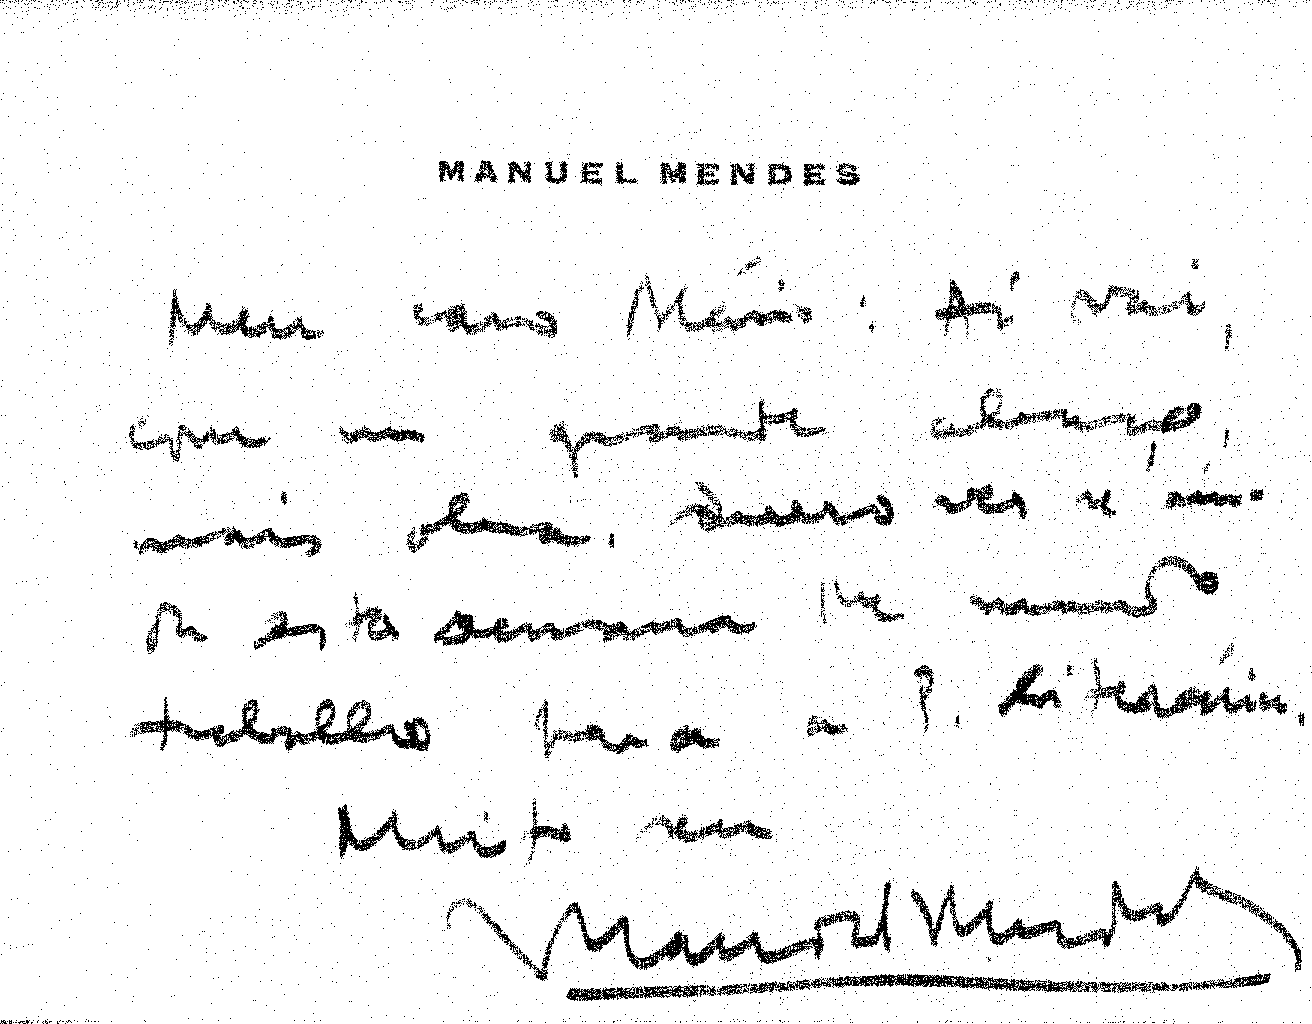 MANUEL MENDES
Meu caro Mário: Aí vai,
com um grande abraço,
mais uma. Quero ver se ain-
da esta semana lhe mando
trabalho para a P. Literária.
Muito seu
Manuel Mendes